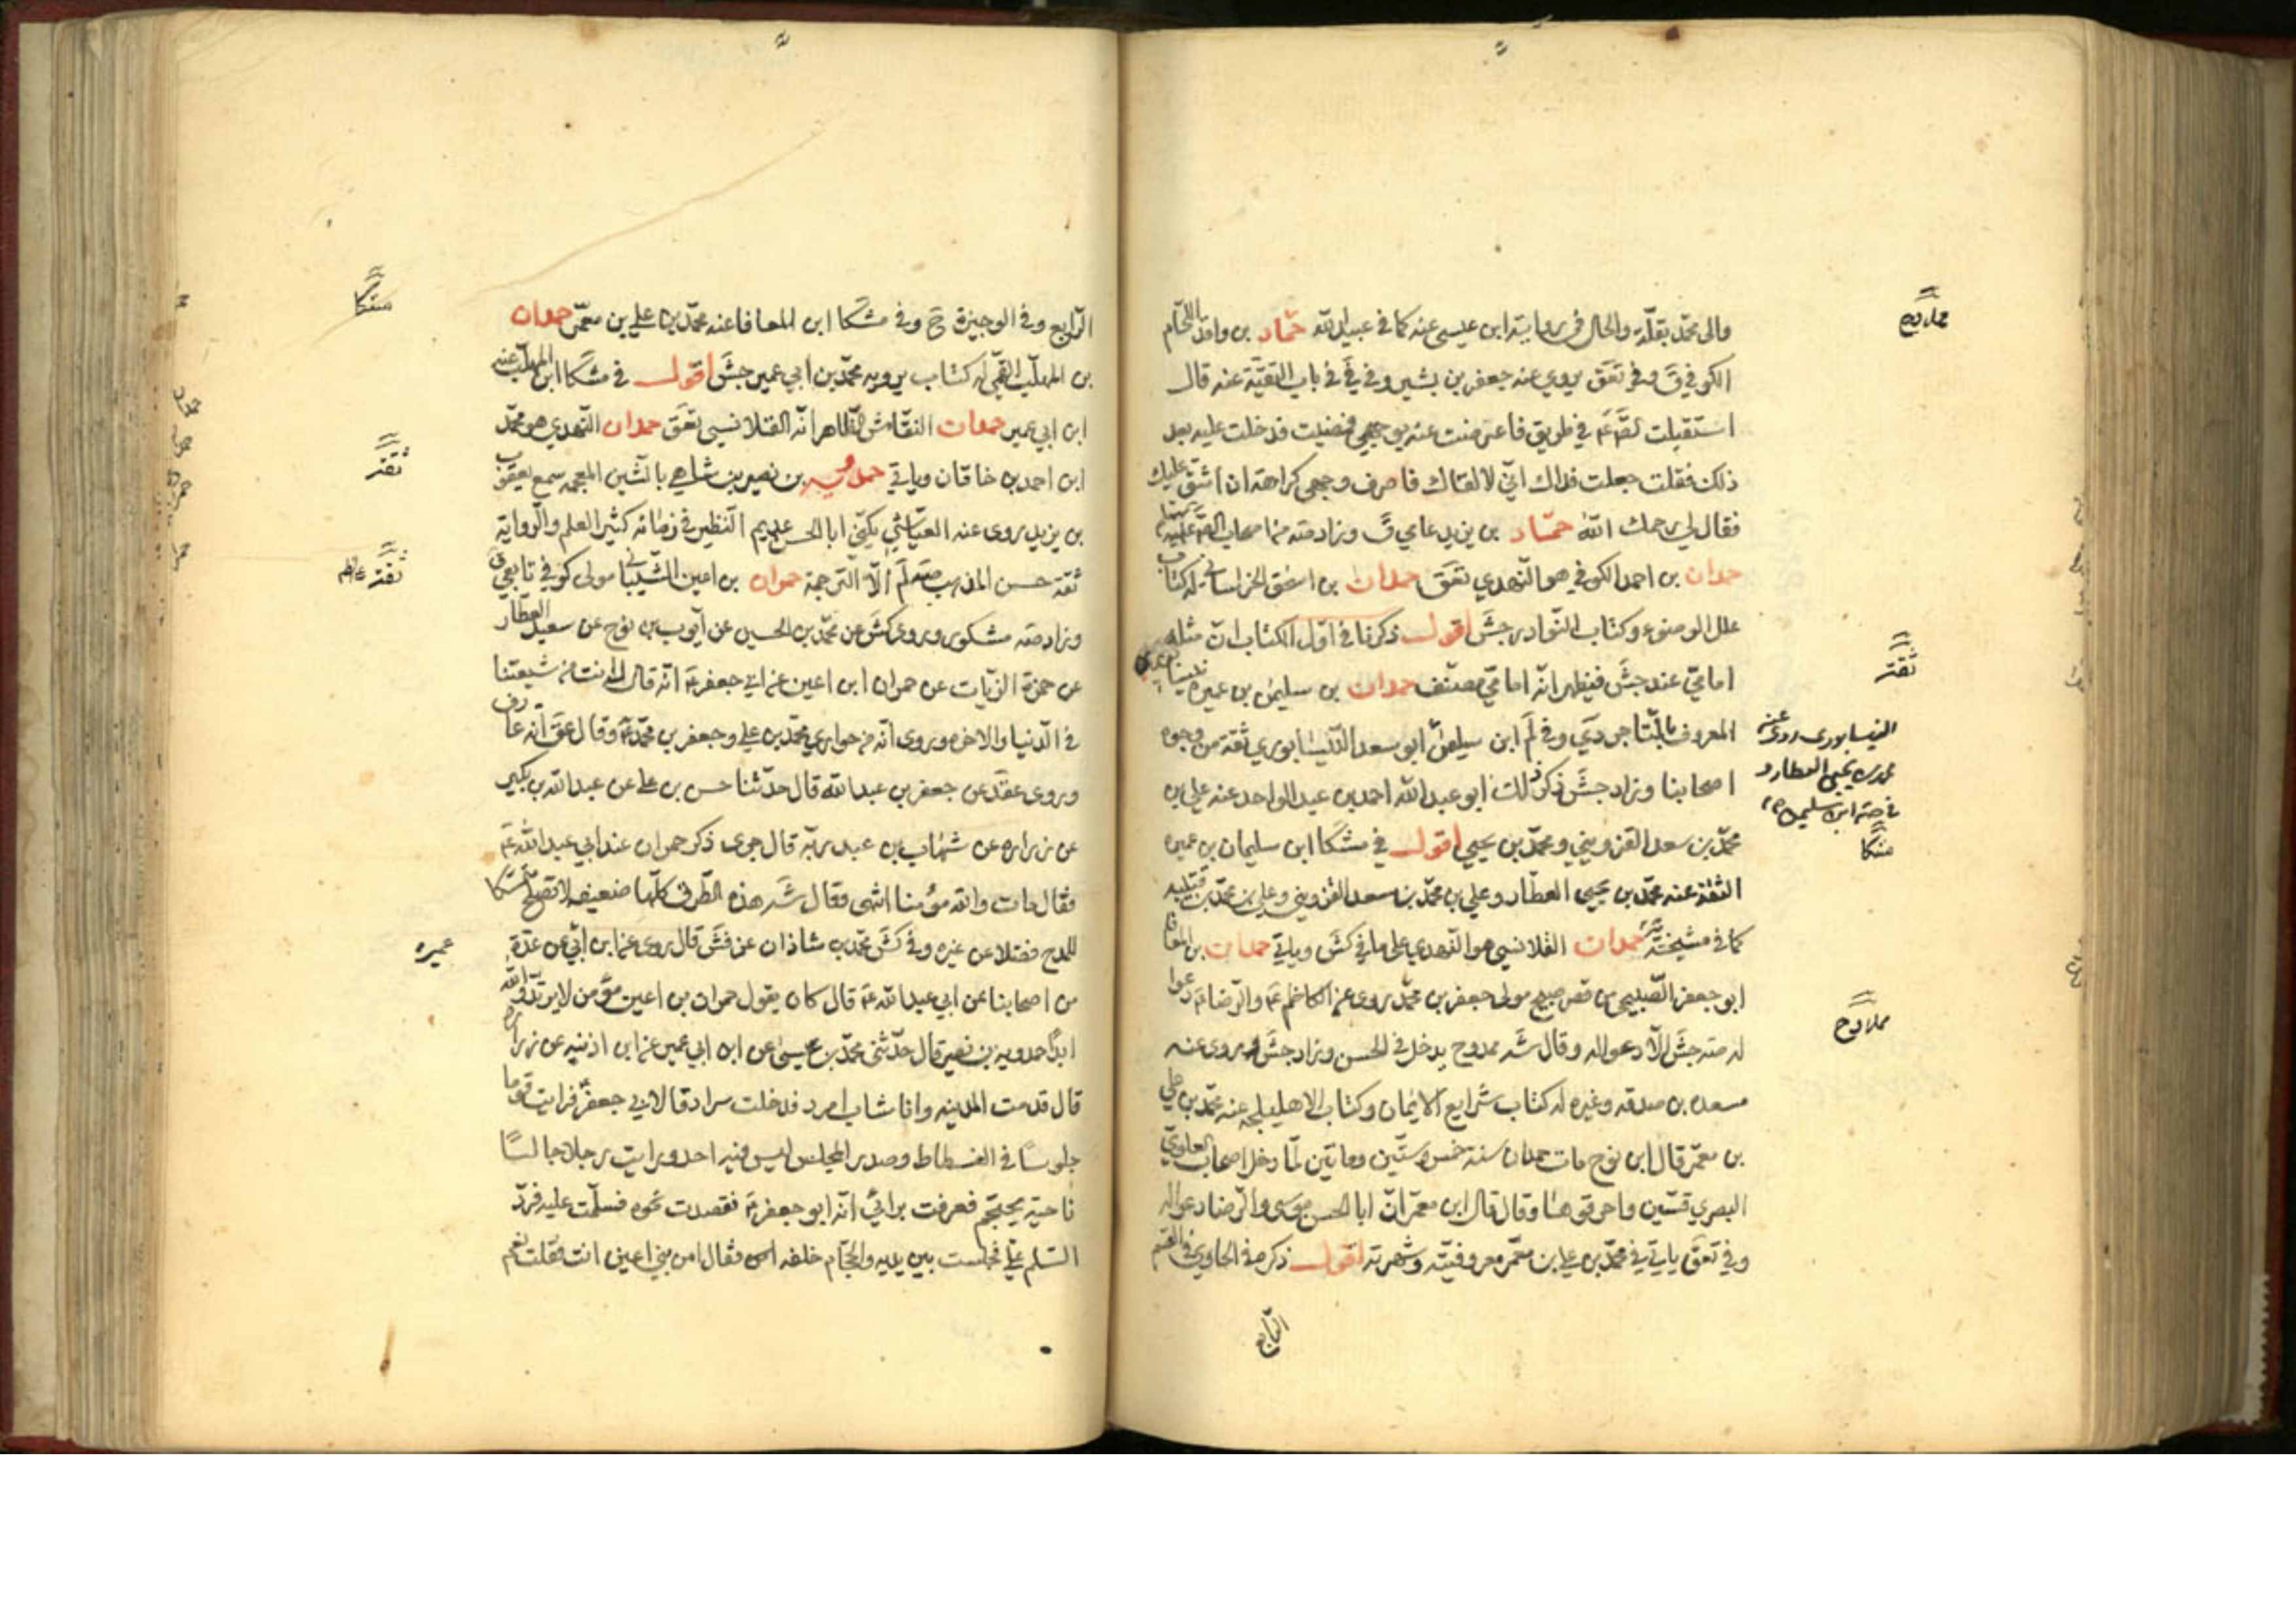 والى محمد بقلة والحال في رواية ابن عيسى عنه كما في عبيد الله حماد بن واقد اللحام
الكوفي ق وفي تعق يروي عنه جعفر بن بشير وفي في في باب التقية عنه قال
استقبلت في طريق فاعرضت عنه بوجهي فمضيت فدخلت عليه بعد
ذلك فقلت جعلت فداك اني لالقاك فاصرف وجهي كراهة ان اشق عليك
فقال لي رحمك الله حماد بن يزيد عامي ق وزاد صه من اصحاب
حمدان بن احمد الكوفي هو النهدي تعق حمدان بن اسحق الخراساني له كتاب
علل الوضوء وكتاب النوادر جش اقول ذكرنا في اول الكتاب ان مثله
امامي عند جش فيظهر انه امامي مصنف حمدان بن سليمان بن عميره نيسابوري
المعروف بالتاجر دي وفي لم ابن سليمان ابو سعد النيسابوري ثقة من وجوه
اصحابنا وزاد جش ذكر ذلك ابو عبدالله احمد بن عبد الواحد عنه علي بن
محمد بن سعد القزويني ومحمد بن يحيى اقول في مشكا ابن سليمان بن عميره
الثقة عنه محمد بن يحيى العطار وعلي بن محمد بن سعد القزويني وعلي بن محمد بن قتيبه
كما في مشيخة حمدان القلانسي هو النهدي على ما في كش وياتي حمدان بن المعافا
ابو جعفر الصبيحي من قصر صبيح مولى جعفر بن محمد روى عن الكاظم ع والرضا ع دعوا
له صه جش الا دعوا له وقال شه ممدوح يدخل في الحسن وزاد جش روى عنه
مسعدة بن صدقه وغيره له كتاب شرايع الايمان وكتاب الاهليلجه عنه محمد بن علي
بن معمر قال ابن نوح مات حمدان سنة خمس وستين ومأتين لما دخل اصحاب العلوي
البصري قسين واحرقوها وقال قال ابن معمر ان ابا الحسن موسى والرضا دعوا له
وفي تعق ياتي في محمد بن علي بن معمر معروفيته وشهرته اقول ذكره في الحاوي في القسم
الرابع
ممدوح
ثقة
النيسابوري روى عنه
محمد بن يحيى العطار و
في صه ابن سليمان
مشكا
ممدوح
الرابع وفي الوجيزة ح وفي مشكا ابن المعافا عنه محمد بن علي بن معمر حمدان
بن المهلب القمي له كتاب يرويه محمد بن ابي عمير جش اقول في مشكا ابن المهلب عنه
ابن ابي عمير حمدان النقاش الظاهر انه القلانسي تعق حمدان النهدي هو محمد
ابن احمد بن خاقان وياتي حمدويه بن نصير بن شاهي بالشين المعجمه سمع يعقوب
بن يزيد روى عنه العياشي يكنى ابا الحسن عديم النظير في زمانه كثير العلم والرواية
ثقة حسن المذهب صه لم الا الترجمة حمران بن اعين الشيباني مولى كوفي تابعي ق
وزاد صه مشكور وروى كش عن محمد بن الحسين عن ايوب بن نوح عن سعيد العطار
عن حمزة الزيات عن حمران ابن اعين عن ابي جعفر ع انه قال له انت من شيعتنا
في الدنيا والاخره وروى انه من حواري محمد بن علي وجعفر بن محمد ع وقال عق انه عارف
وروى عقد عن جعفر بن عبدالله قال حدثنا حسن بن علي عن عبدالله بن بكير
عن زراره عن شهاب بن عبد ربه قال جرى ذكر حمران عند ابي عبدالله ع
فقال مات والله مؤمنا انتهى وقال شه هذه الطرق كلها ضعيفه لا تصلح متمسكا
للمدح فضلا عن غيره وفي كش محمد بن شاذان عن فش قال روى عن ابن ابي عن عدة
من اصحابنا عن ابي عبدالله ع قال كان يقول حمران بن اعين مؤمن لا يرتد والله
ابدا حمدويه بن نصير قال حدثني محمد بن عيسى عن ابن ابي عمير عن ابن اذينه عن زراره
قال قدمت المدينه وانا شاب امرد فدخلت سرادقا لابي جعفر ع فرايت قوما
جلوسا في الفسطاط وصدر المجلس ليس فيه احد ورايت رجلا جالسا
ناحية يحتجم فعرفت برائي انه ابو جعفر ع فقصدت نحوه فسلمت عليه فرد
السلم علي فجلست بين يديه والحجام خلفه فقال امن بني اعين انت فقلت نعم
مشكا
ثقة
ثقة
عميره